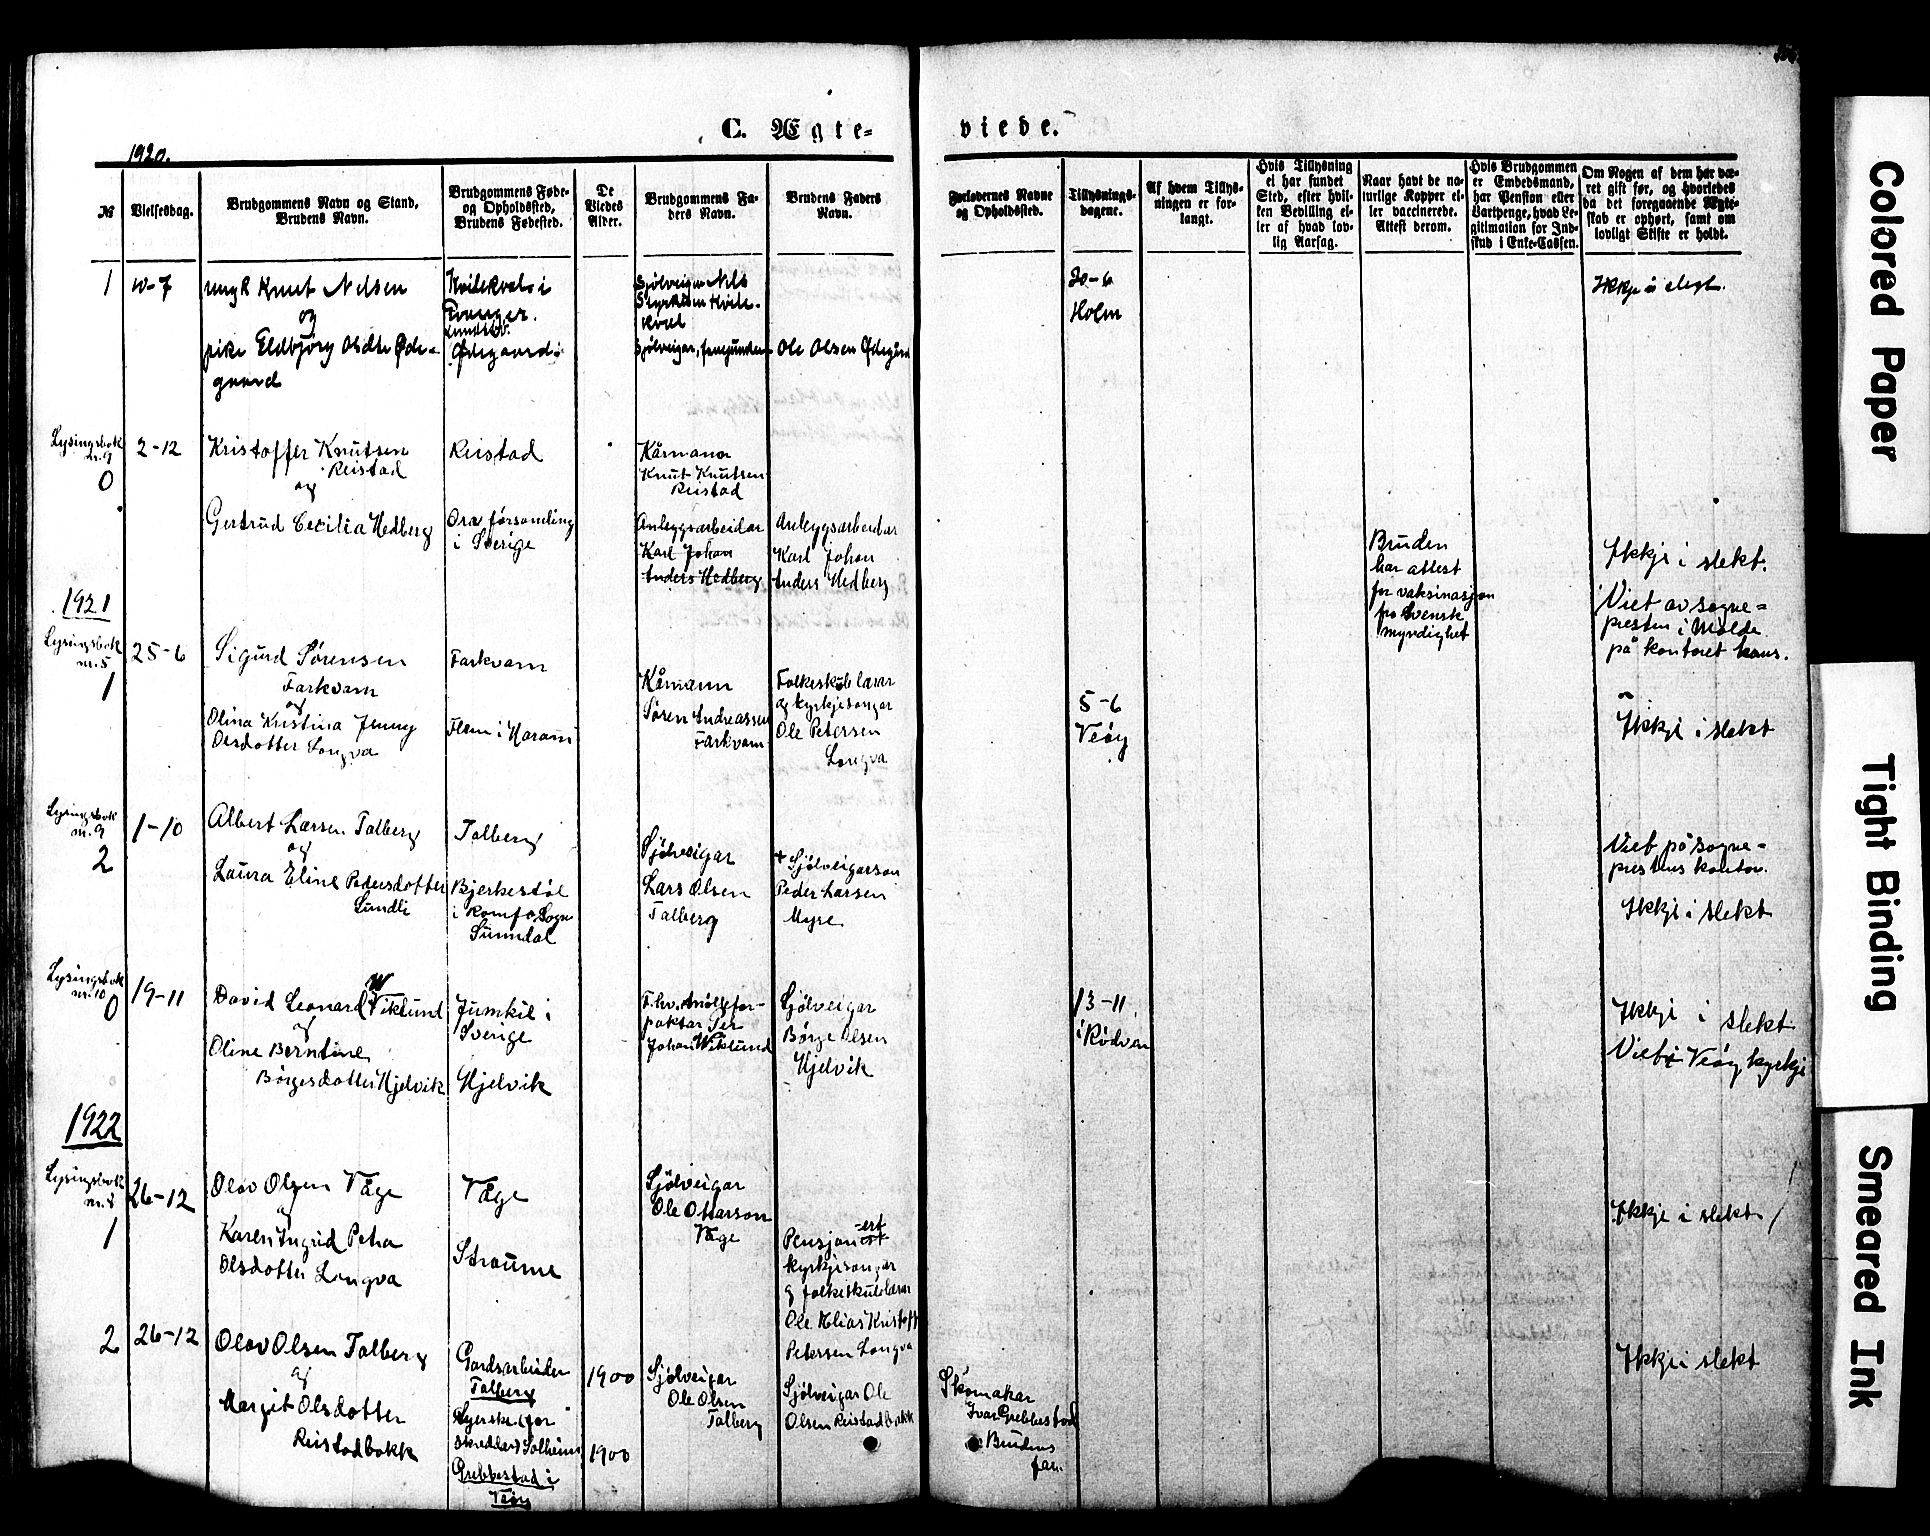 C. Ægte-
viede.
1920.
№
Vielsesdag.
Brudgommens Navn og Stand,
Brudens Navn.
Brudgommens Føde-
og Opholdssted,
Brudens Fødested.
De
Viedes
Alder.
Brudgommens Fa-
ders Navn.
Brudens Faders
Navn.
Forlovernes Navne
og Opholdssted.
Tillysnings-
dagene.
Af hvem Tillys-
ningen er for-
langt.
Hvis Tillysning
ei har fundet
Sted, efter hvil-
ken Bevilling el-
ler af hvad lov-
lig Aarsag.
Naar havt de na-
turlige Kopper el-
ler vaccinerede.
Attest derom.
Hvis Brudgommen
er Embedsmand,
har Pension eller
Vartpenge, hvad Le-
gitimation for Ind-
skud i Enke-Cassen.
Om Nogen af dem har væ-
ret gift før, og hvorledes
da det foregaaende Ægte-
skab er ophørt, samt om
lovligt Skifte er holdt.
1
10-7
ungk Knut Nelsen
og
pike Eldbjørg Olsdtr Øde-
gaard
Kvitekvol i
Ødegaard
Sjølveigar Nils
Styrksen Kvite-
kvol
Sjølveigar,
Ole Olsen Ødegård
20-6
Holm
Ikkje i slegt.
Lysingsbok
nr. 9
0
2-12
Kristoffer Knutsen
Reistad
og
Gertrud Cecilia Hedberg
Reistad
Ora forsamling
i Sverige
Kårmann
Knut Knutsen
Reistad
Anleggsarbeidar
Karl Johan
Anders Hedberg
Anleggsarbeidar
Karl Johan
Anders Hedberg
Bruden
har attest
for vaksinasjon
fra Svensk
myndighet
Ikkje i slekt.
Viet av sogne-
presten i Molde
på kontoret hans.
1921
Lysingsbok
nr. 5
1
25-6
Sigurd Sørensen
Farkvam
og
Olina Kristina Jenny
Olsdotter Longva
Farkvam
Flem i Haram
Kårmann
Søren Andreassen
Farkvam
Folkeskulelærar
og kyrkjesongar
Ole Petersen
Longva
5-6
Veöy
Ikkje i slekt
Lysingsbok
nr. 9
2
1-10
Albert Larsen Talberg
og
Laura Eline Pedersdotter
Lundli
Talberg
Bjerkestøl
i Romfo Sogn
Sunndal
Sjølveigar
Lars Olsen
Talberg
+ Sjølveigarson
Peder Larsen
Myre
Viet på sogne-
prestens kontor.
Ikkje i slekt
Lysingsbok
nr. 10
0
19-11
David Leonard Wiklund
og
Oline Berntine
Børgesdotter Hjelvik
Jumkil i
Sverige
Hjelvik
F.hv. möllefor-
paktar Per
Johan Wiklund
Sjölveigar
Børge Olsen
Hjelvik
13-11
i Rödven
Ikkje i slekt
Viet i Veöy kyrkje
1922
Lysingsbok
nr. 8
1
26-12
Olav Olsen Våge
og
Karen Ingrid Petra
Olsdotter Longva
Våge
Straume
Sjölveigar
Ole Ottarson
Våge
Pensjonert
kyrkjesongar
og folkeskulelærar
Ole Elias Kristoff
Petersen Longva
Ikkje i slekt
2
26-12
Olav Olsen Talberg
og
Margit Olsdotter
Reistadbakk
Gardsarbeider
Talberg
Syerske for
skreddar Solheim
Grebbestad i
Veöy
1900
1900
Sjölveigar
Ole Olsen
Talberg
Sjölveigar Ole
Olsen Reistadbakk
Skomakar
Ivar Grebbestad
Brudens
far.
Ikkje i slekt
Colored Paper
Tight Binding
Smeared Ink